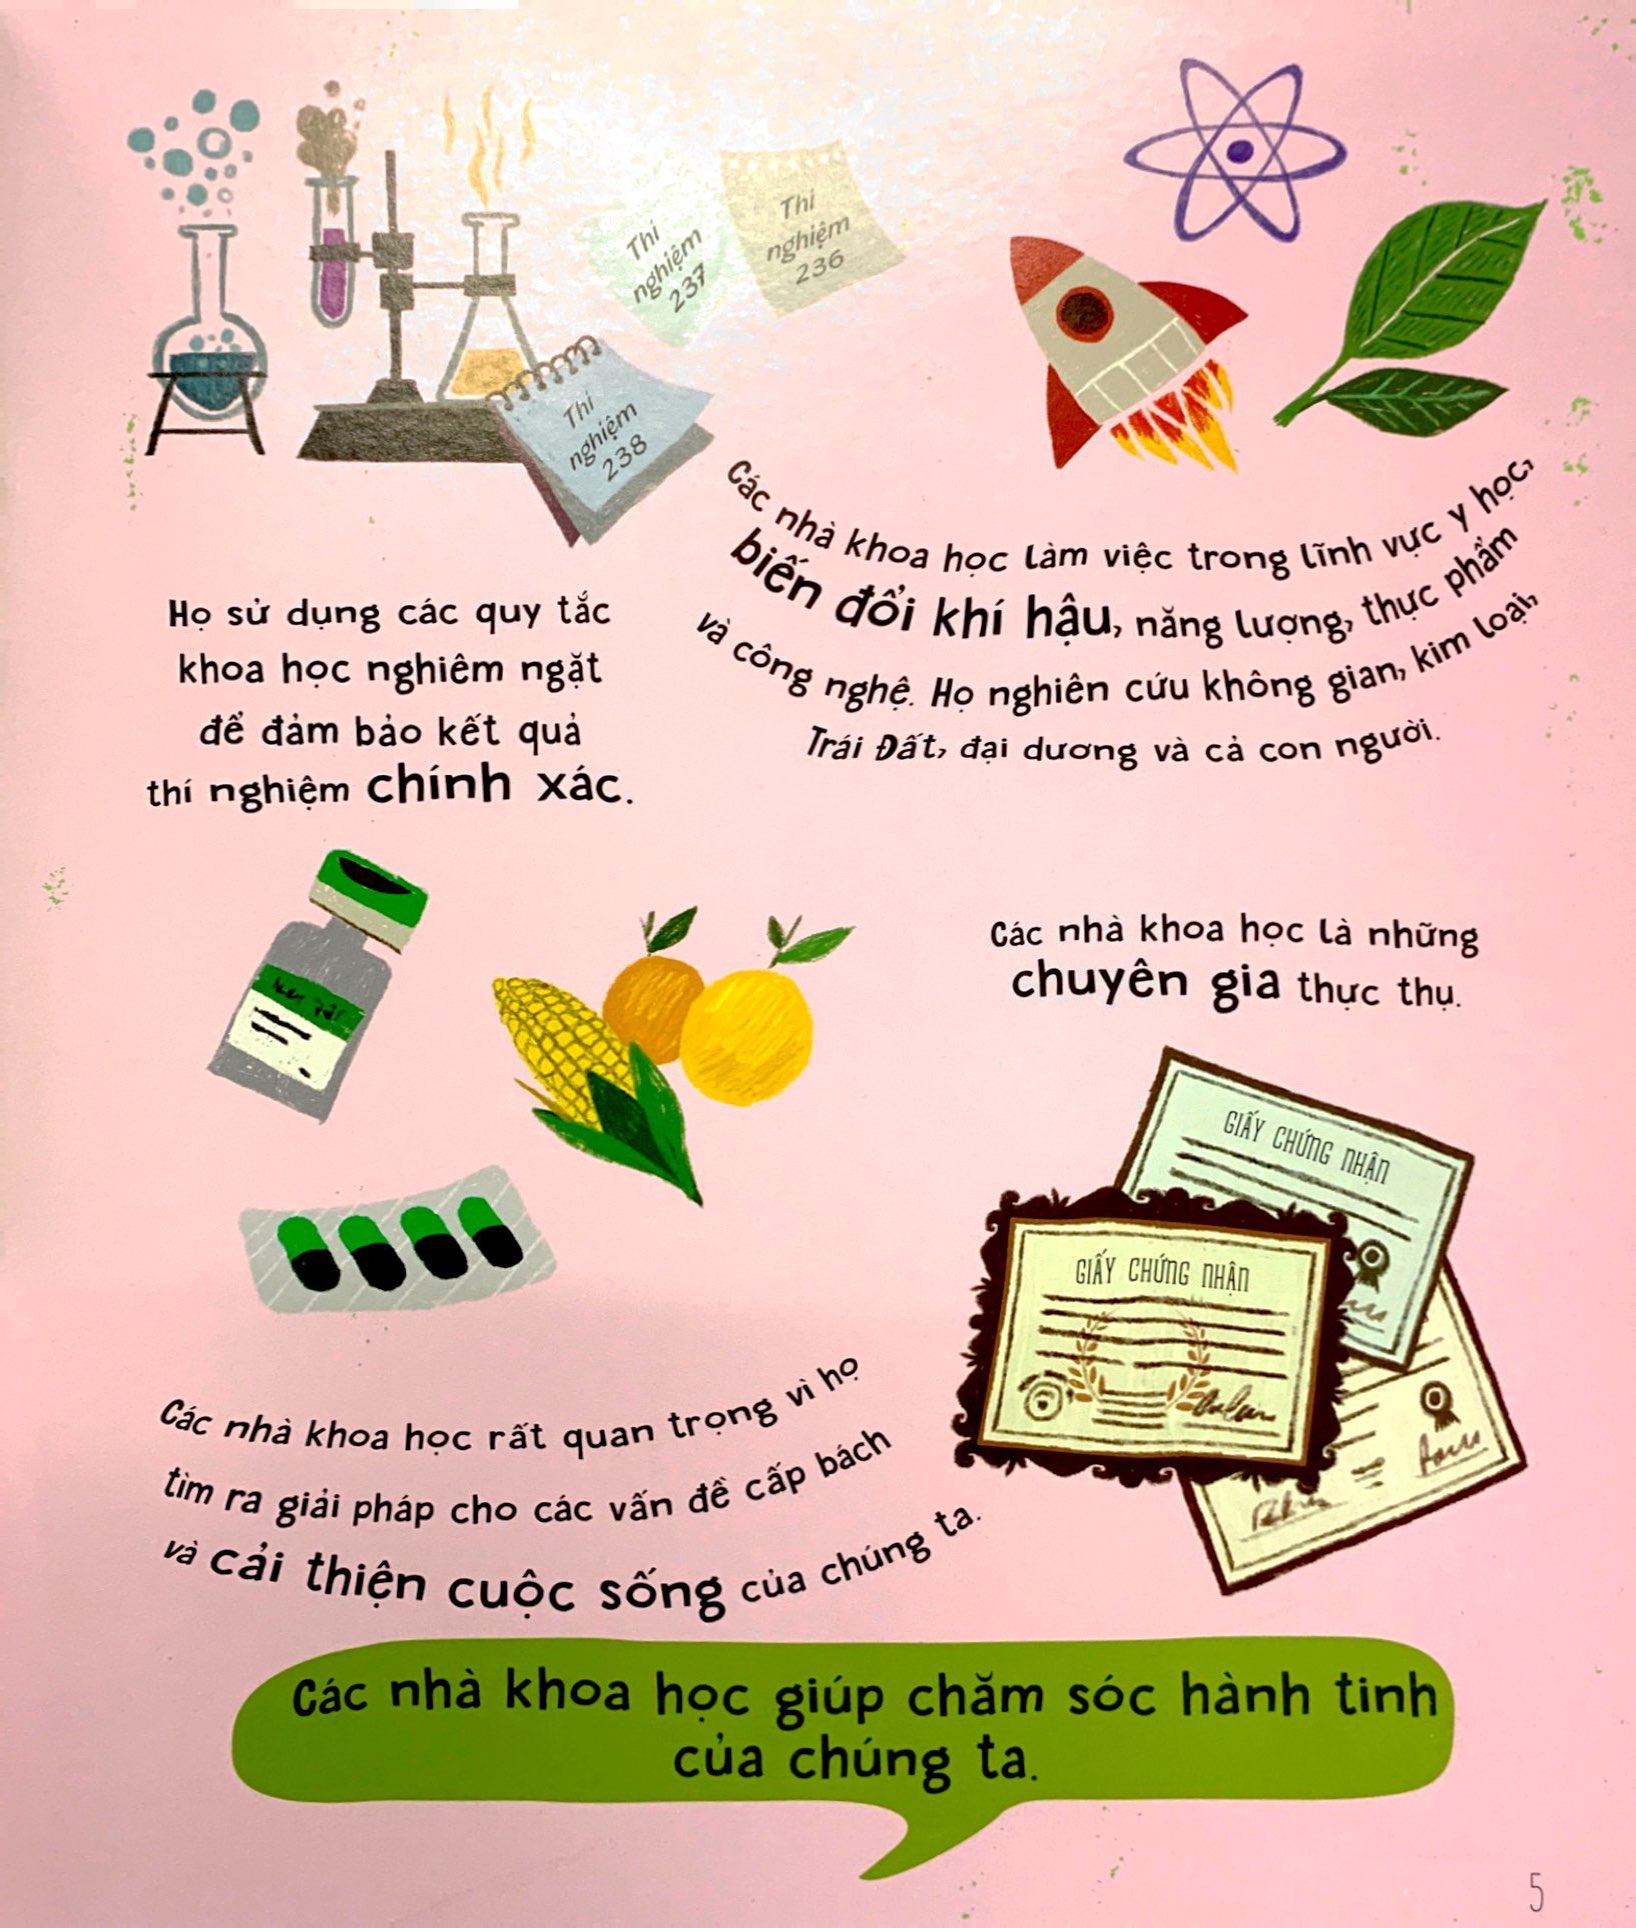 Thí
nghiệm
236
Thí
nghiệm
237
Thí
nghiệm
238
Họ sử dụng các quy tắc
khoa học nghiêm ngặt
để đảm bảo kết quả
thí nghiệm chính xác.
Các nhà khoa học làm việc trong lĩnh vực y học,
biến đổi khí hậu, năng lượng, thực phẩm
và công nghệ. Họ nghiên cứu không gian, kim loại,
Trái Đất, đại dương và cả con người.
Các nhà khoa học là những
chuyên gia thực thụ.
GIẤY CHỨNG NHẬN
GIẤY CHỨNG NHẬN
Các nhà khoa học rất quan trọng vì họ
tìm ra giải pháp cho các vấn đề cấp bách
và cải thiện cuộc sống của chúng ta.
Các nhà khoa học giúp chăm sóc hành tinh
của chúng ta.
5